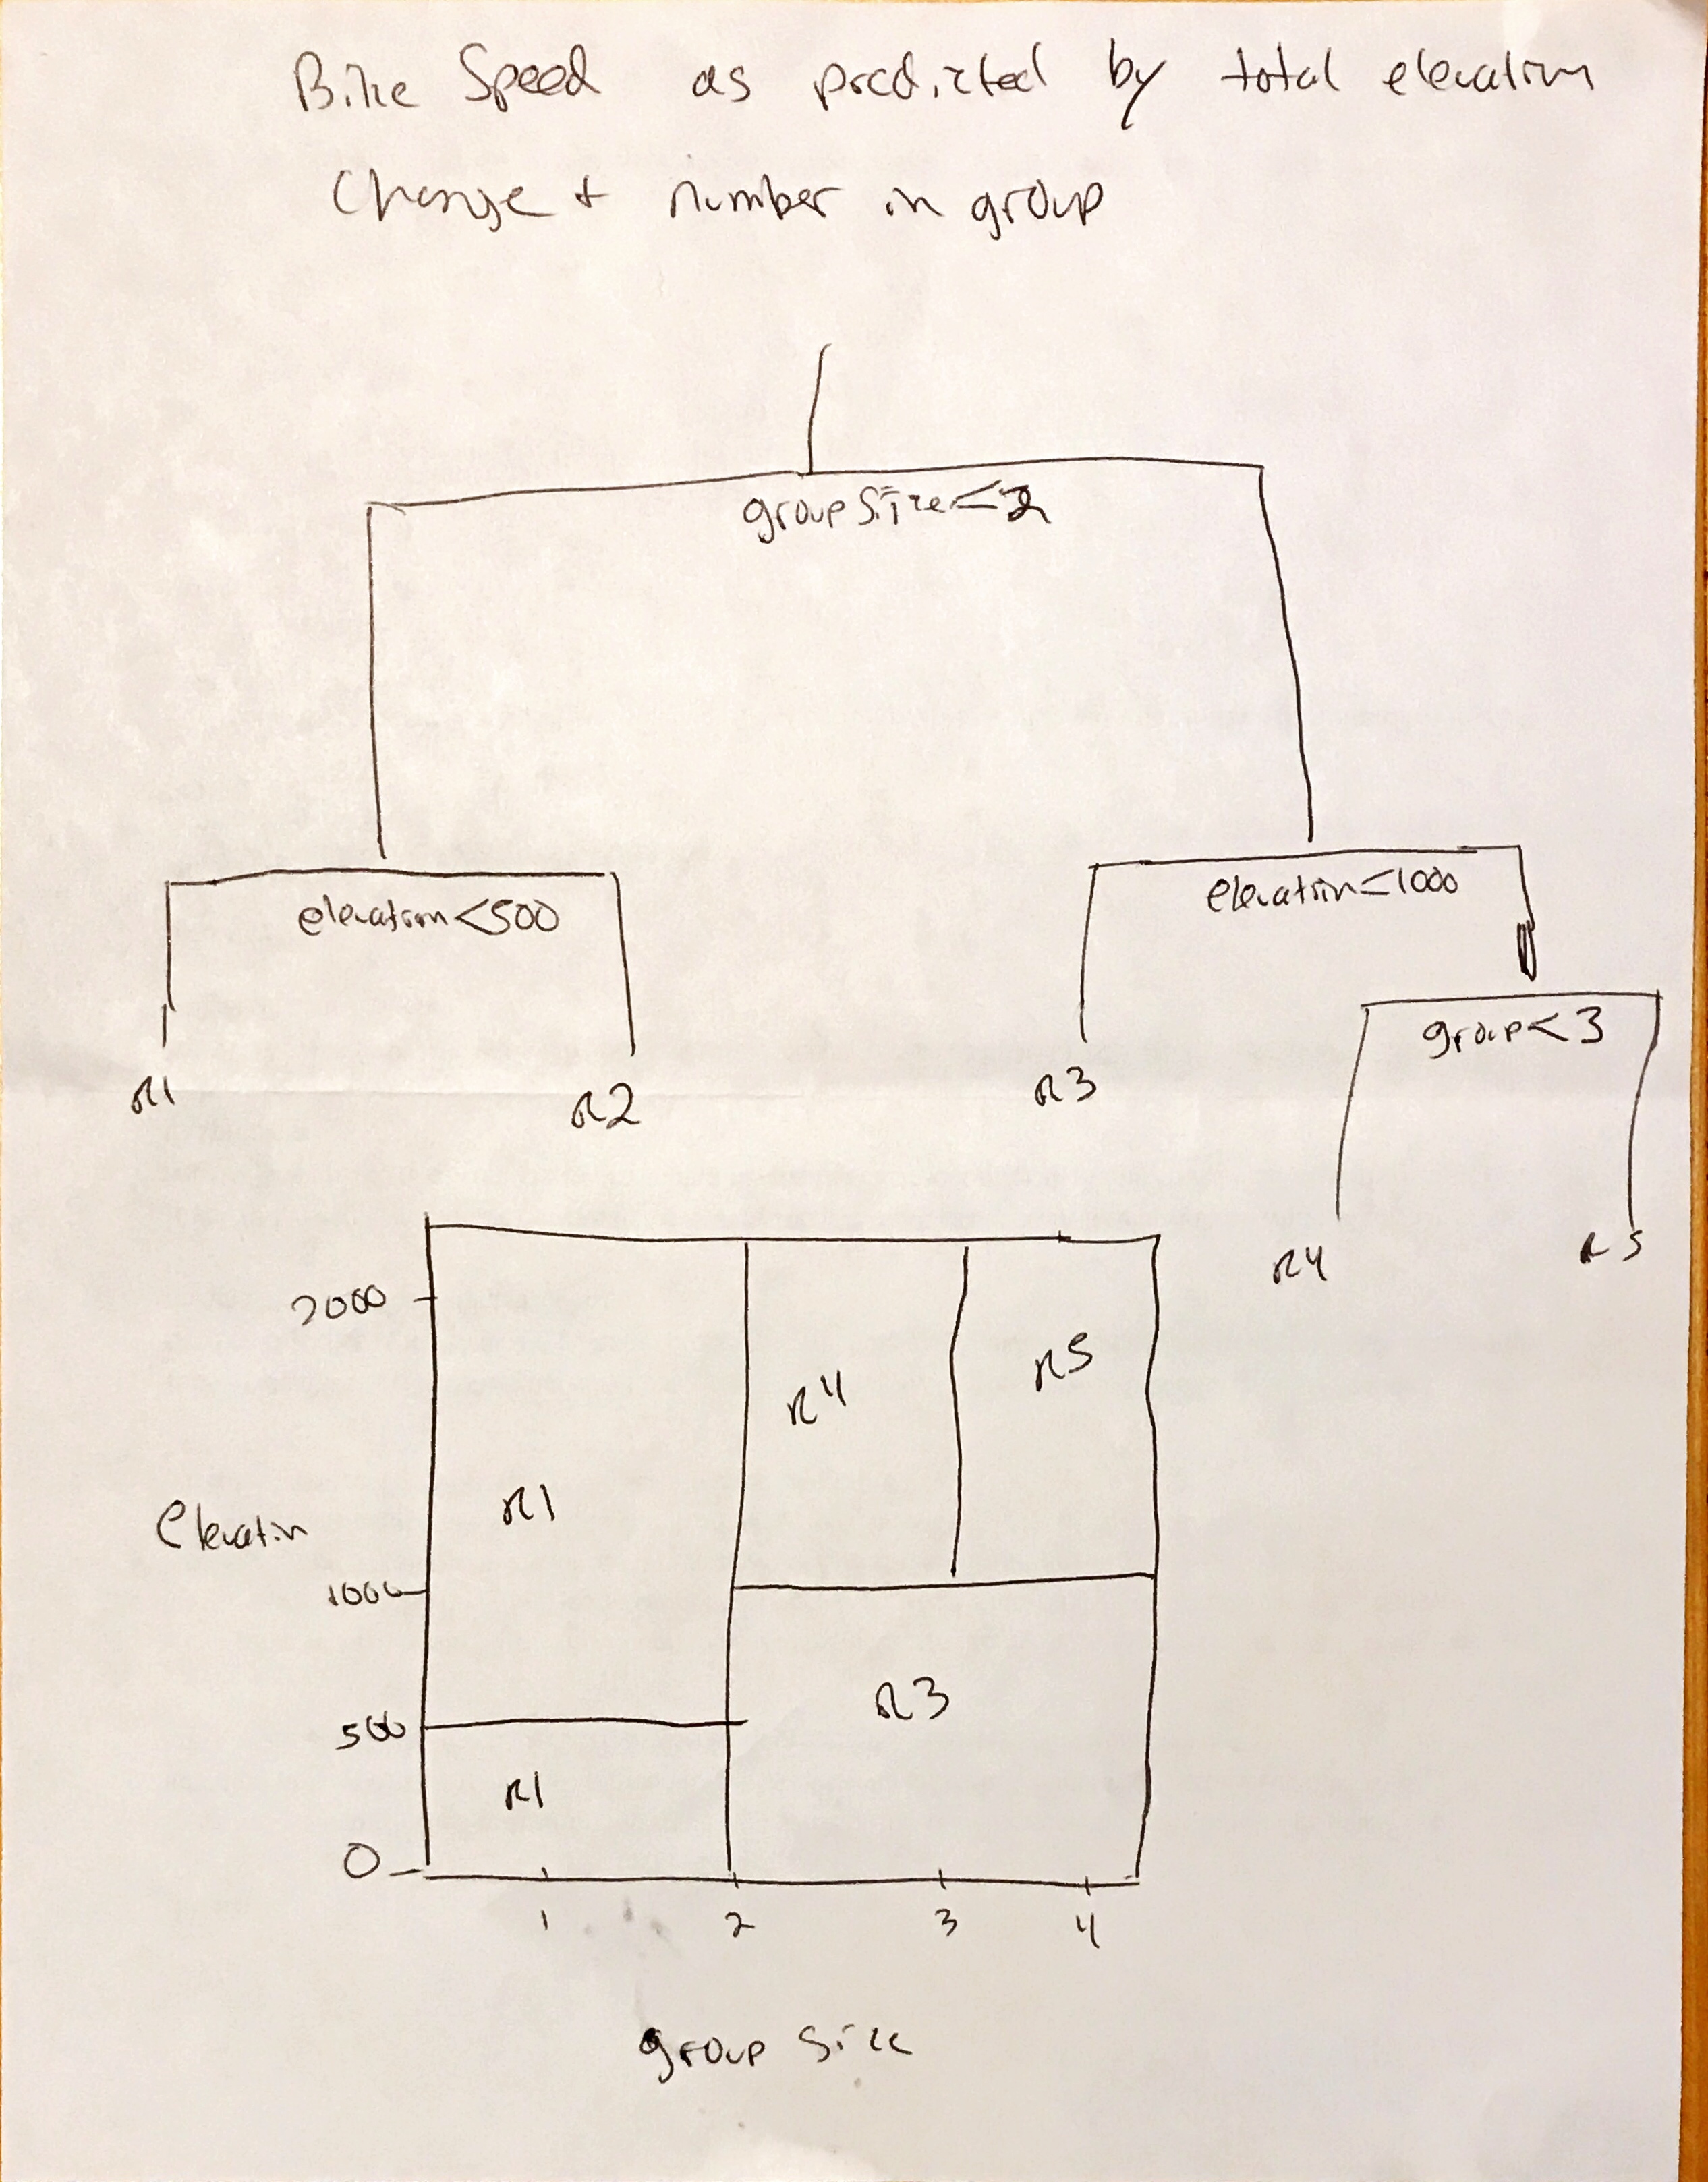 Bike Speed as predicted by total elevation
Change + number in group
groupSize<2
elevation<500
elevation<1000
group<3
R1
R2
R3
R4
R5
2000
R4
R5
R1
Elevation
1000
R3
500
R1
0
1 2 3 4
group size